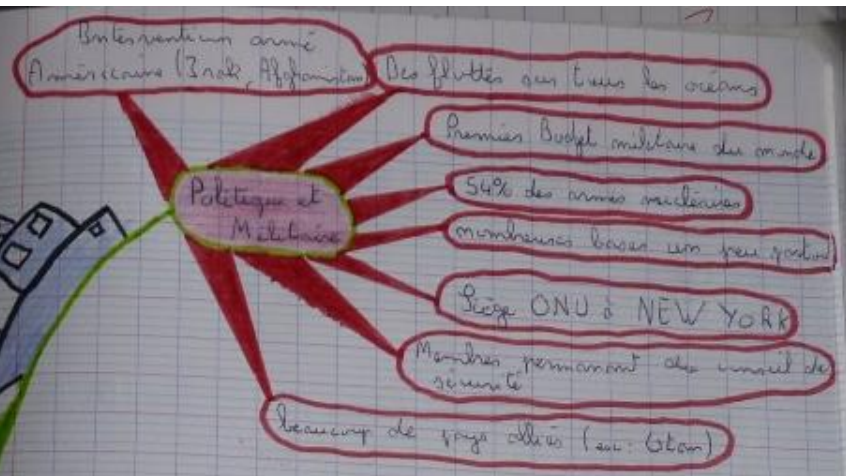 Intervention armé
Américaine (Irak, Afghanistan)
Des flottes sur tous les océans
Premier Budget militaire du monde
54% des armes nucléaires
Politique et
Militaire
nombreuses bases un peu partout
Siège ONU à NEW YORK
Membres permanant du conseil de
sécurité
beaucoup de pays alliés (ex: Otan)